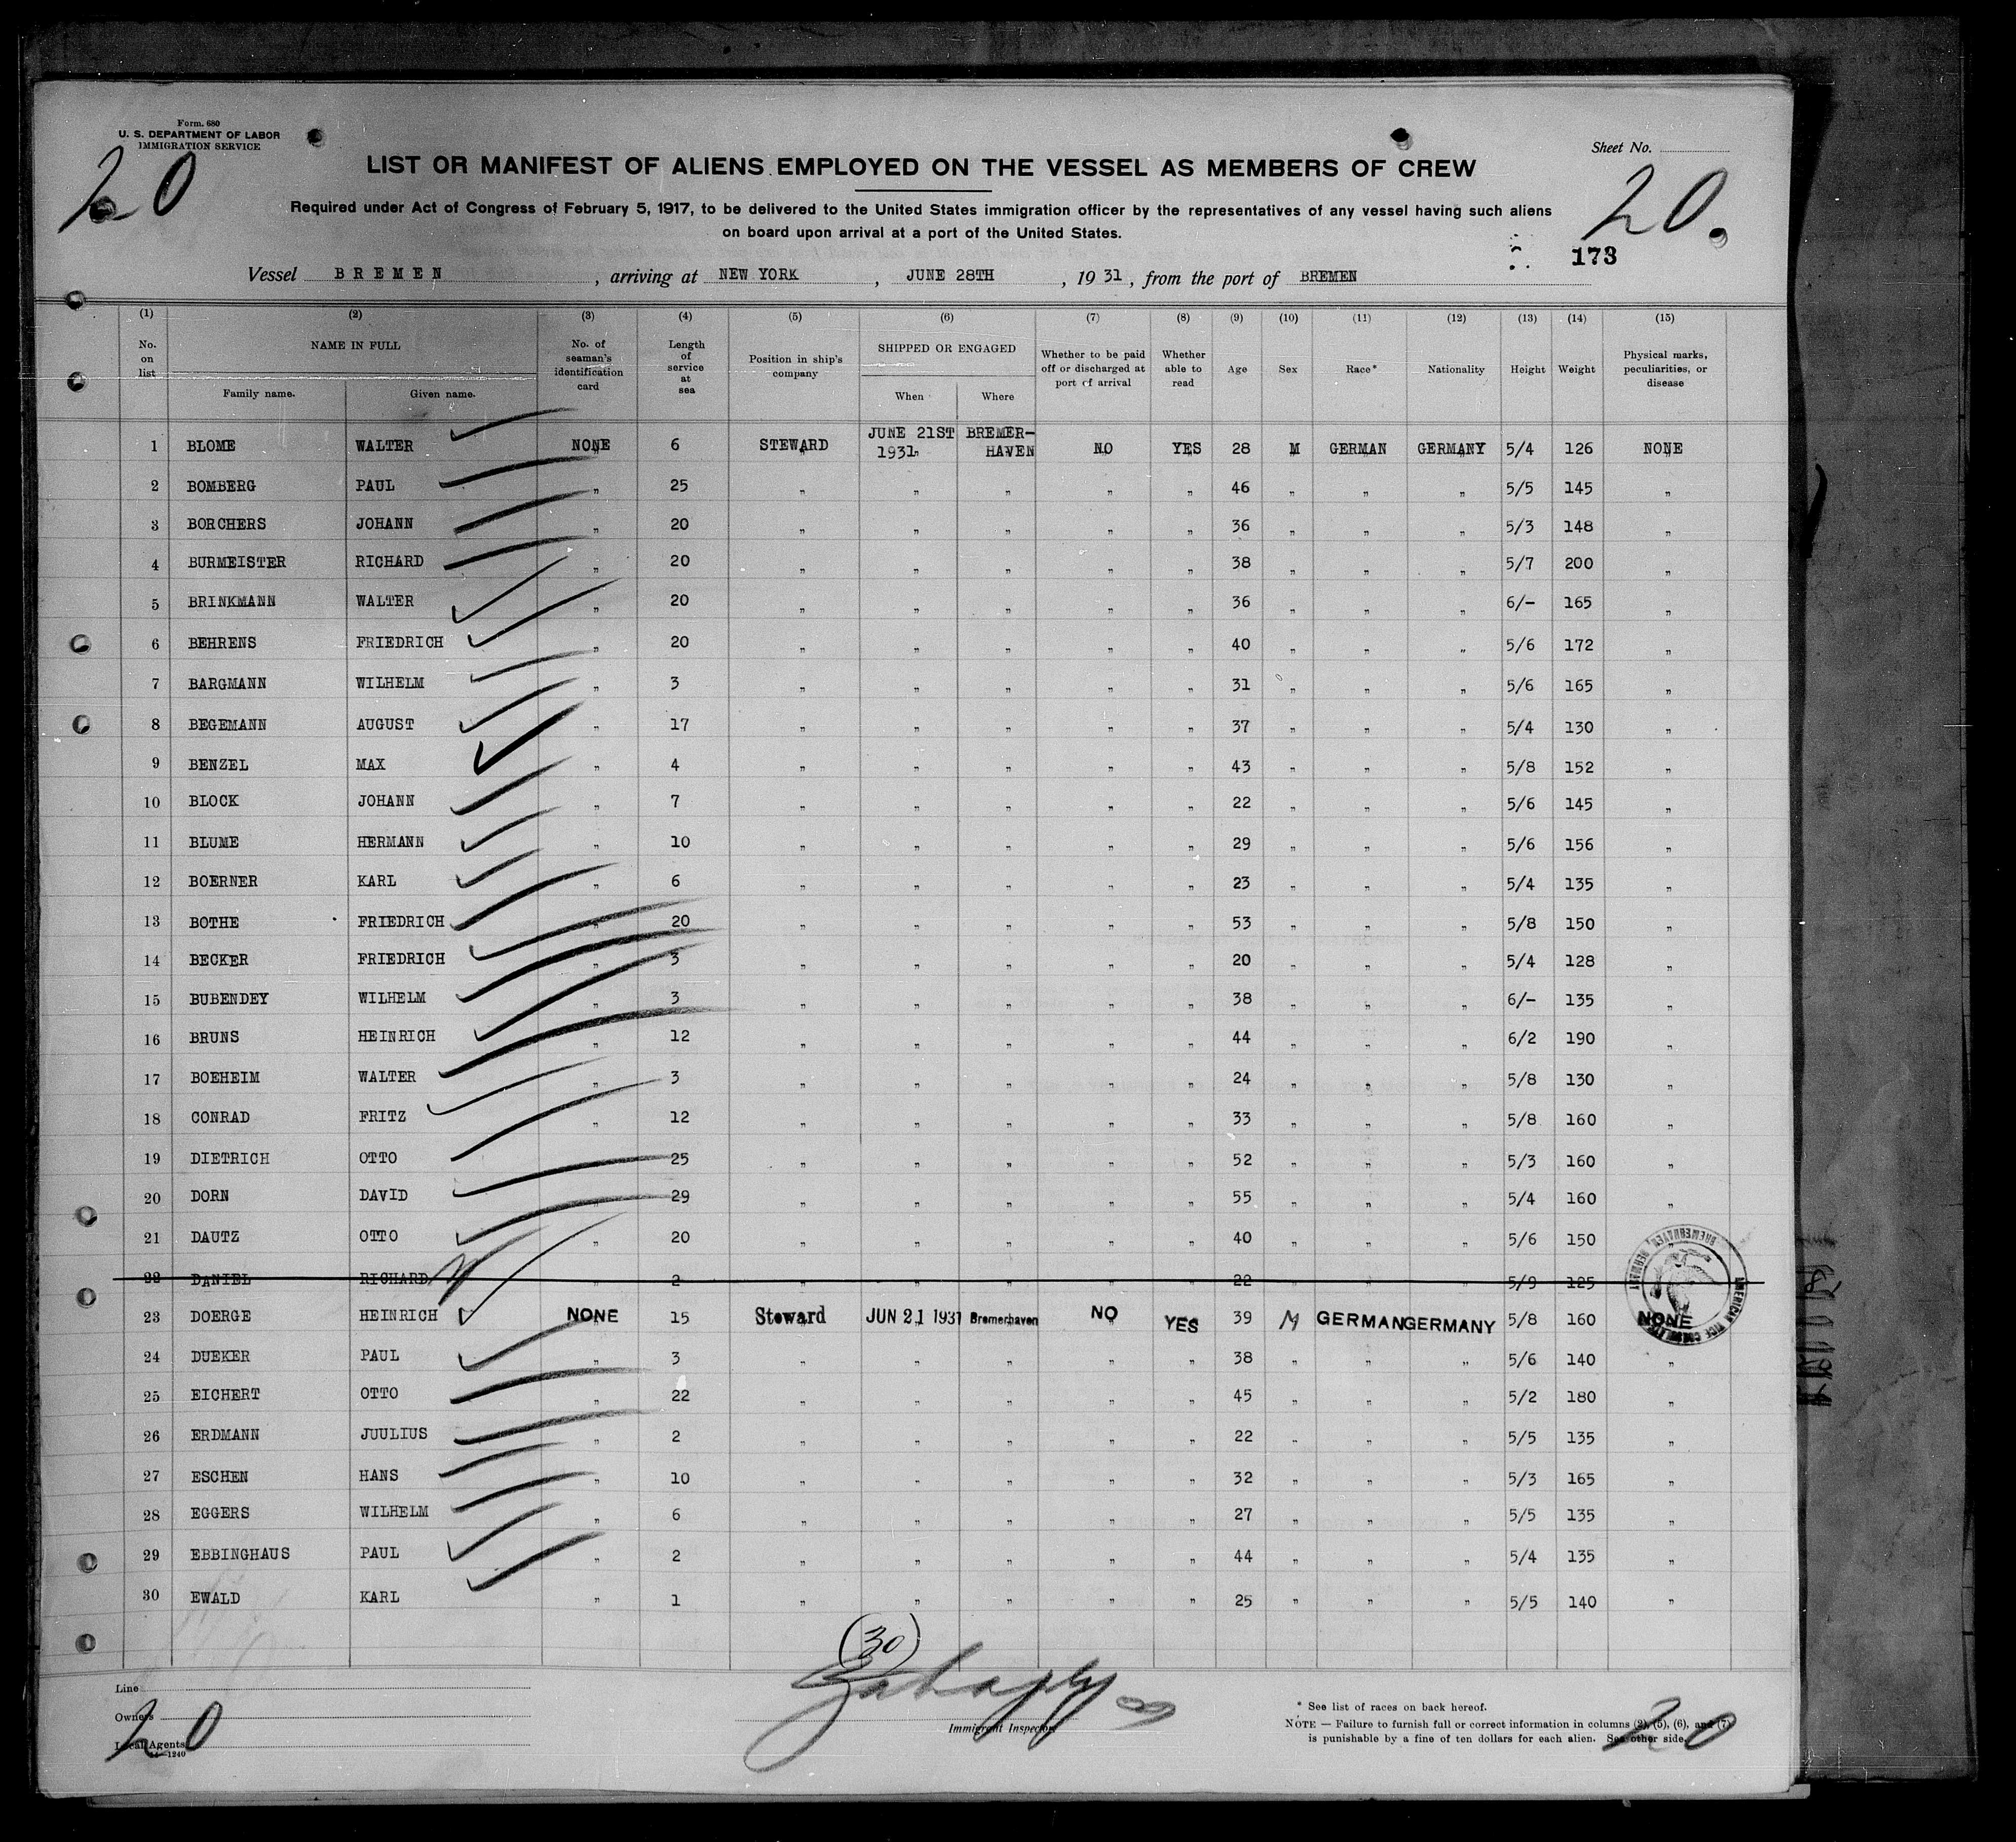 Form. 680
U. S. DEPARTMENT OF LABOR
IMMIGRATION SERVICE
20
Sheet No.
20.
LIST OR MANIFEST OF ALIENS EMPLOYED ON THE VESSEL AS MEMBERS OF CREW
Required under Act of Congress of February 5, 1917, to be delivered to the United States immigration officer by the representatives of any vessel having such aliens
on board upon arrival at a port of the United States.
173
Vessel BREMEN , arriving at NEW YORK , JUNE 28TH , 19 31 , from the port of BREMEN
(1) (2) (3) (4) (5) (6) (7) (8) (9) (10) (11) (12) (13) (14) (15)
No. on list NAME IN FULL Family name. Given name. No. of seaman's identification card Length of service at sea Position in ship's company SHIPPED OR ENGAGED When Where Whether to be paid off or discharged at port of arrival Whether able to read Age Sex Race* Nationality Height Weight Physical marks, peculiarities, or disease
1 BLOME WALTER NONE 6 STEWARD JUNE 21ST 1931 BREMER-HAVEN NO YES 28 M GERMAN GERMANY 5/4 126 NONE
2 BOMBERG PAUL " 25 " " " " " 46 " " " 5/5 145 "
3 BORCHERS JOHANN " 20 " " " " " 36 " " " 5/3 148 "
4 BURMEISTER RICHARD " 20 " " " " " 38 " " " 5/7 200 "
5 BRINKMANN WALTER " 20 " " " " " 36 " " " 6/- 165 "
6 BEHRENS FRIEDRICH " 20 " " " " " 40 " " " 5/6 172 "
7 BARGMANN WILHELM " 3 " " " " " 31 " " " 5/6 165 "
8 BEGEMANN AUGUST " 17 " " " " " 37 " " " 5/4 130 "
9 BENZEL MAX " 4 " " " " " 43 " " " 5/8 152 "
10 BLOCK JOHANN " 7 " " " " " 22 " " " 5/6 145 "
11 BLUME HERMANN " 10 " " " " " 29 " " " 5/6 156 "
12 BOERNER KARL " 6 " " " " " 23 " " " 5/4 135 "
13 BOTHE FRIEDRICH " 20 " " " " " 53 " " " 5/8 150 "
14 BECKER FRIEDRICH " 3 " " " " " 20 " " " 5/4 128 "
15 BUBENDEY WILHELM " 3 " " " " " 38 " " " 6/- 135 "
16 BRUNS HEINRICH " 12 " " " " " 44 " " " 6/2 190 "
17 BOEHEIM WALTER " 3 " " " " " 24 " " " 5/8 130 "
18 CONRAD FRITZ " 12 " " " " " 33 " " " 5/8 160 "
19 DIETRICH OTTO " 25 " " " " " 52 " " " 5/3 160 "
20 DORN DAVID " 29 " " " " " 55 " " " 5/4 160 "
21 DAUTZ OTTO " 20 " " " " " 40 " " " 5/6 150 "
22 DANIEL RICHARD " 2 " " " " " 22 " " " 5/9 125
23 DOERGE HEINRICH NONE 15 Steward JUN 21 1931 Bremerhaven NO YES 39 M GERMAN GERMANY 5/8 160 NONE
24 DUEKER PAUL " 3 " " " " " 38 " " " 5/6 140 "
25 EICHERT OTTO " 22 " " " " " 45 " " " 5/2 180 "
26 ERDMANN JUULIUS " 2 " " " " " 22 " " " 5/5 135 "
27 ESCHEN HANS " 10 " " " " " 32 " " " 5/3 165 "
28 EGGERS WILHELM " 6 " " " " " 27 " " " 5/5 135 "
29 EBBINGHAUS PAUL " 2 " " " " " 44 " " " 5/4 135 "
30 EWALD KARL " 1 " " " " " 25 " " " 5/5 140 "
AMERICAN VICE BREMERHAVEN, GERMANY
(30)
Line
Owners
Local Agents
14—1240
20
Immigrant Inspector.
* See list of races on back hereof.
NOTE — Failure to furnish full or correct information in columns (2), (5), (6), and (7)
is punishable by a fine of ten dollars for each alien. See other side.
20